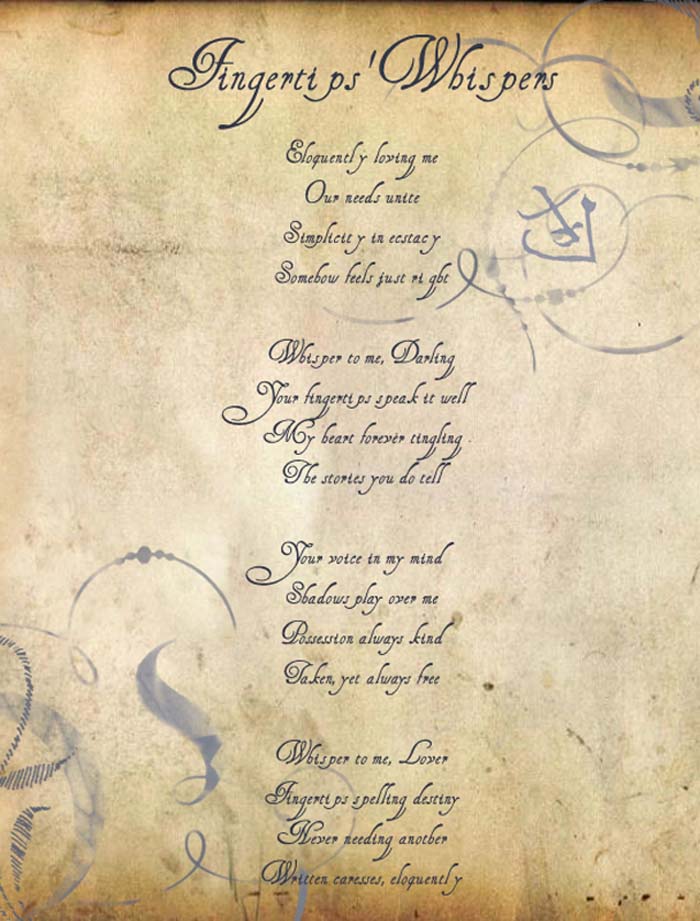 Fingertips' Whispers
Eloquently loving me
Our needs unite
Simplicity in ecstacy
Somehow feels just right
Whisper to me, Darling
Your fingertips speak it well
My heart forever tingling
The stories you do tell
Your voice in my mind
Shadows play over me
Possession always kind
Taken, yet always free
Whisper to me, Lover
Fingertips spelling destiny
Never needing another
Written caresses, eloquently